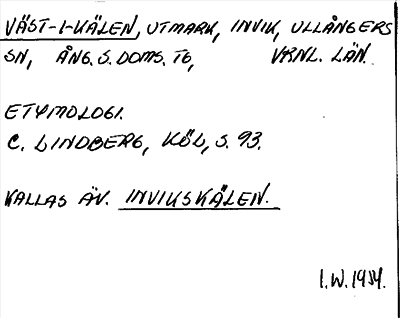 VÄST-I-KÄLEN, UTMARK, INVIK, ULLÅNGERS
SN, ÅNG. S. DOMS. TG, VRNL. LÄN.
ETYMOLOGI.
C. LINDBERG, KÖL, S. 93.
KALLAS ÄV. INVIKSKÄLEN.
I.W. 1984.